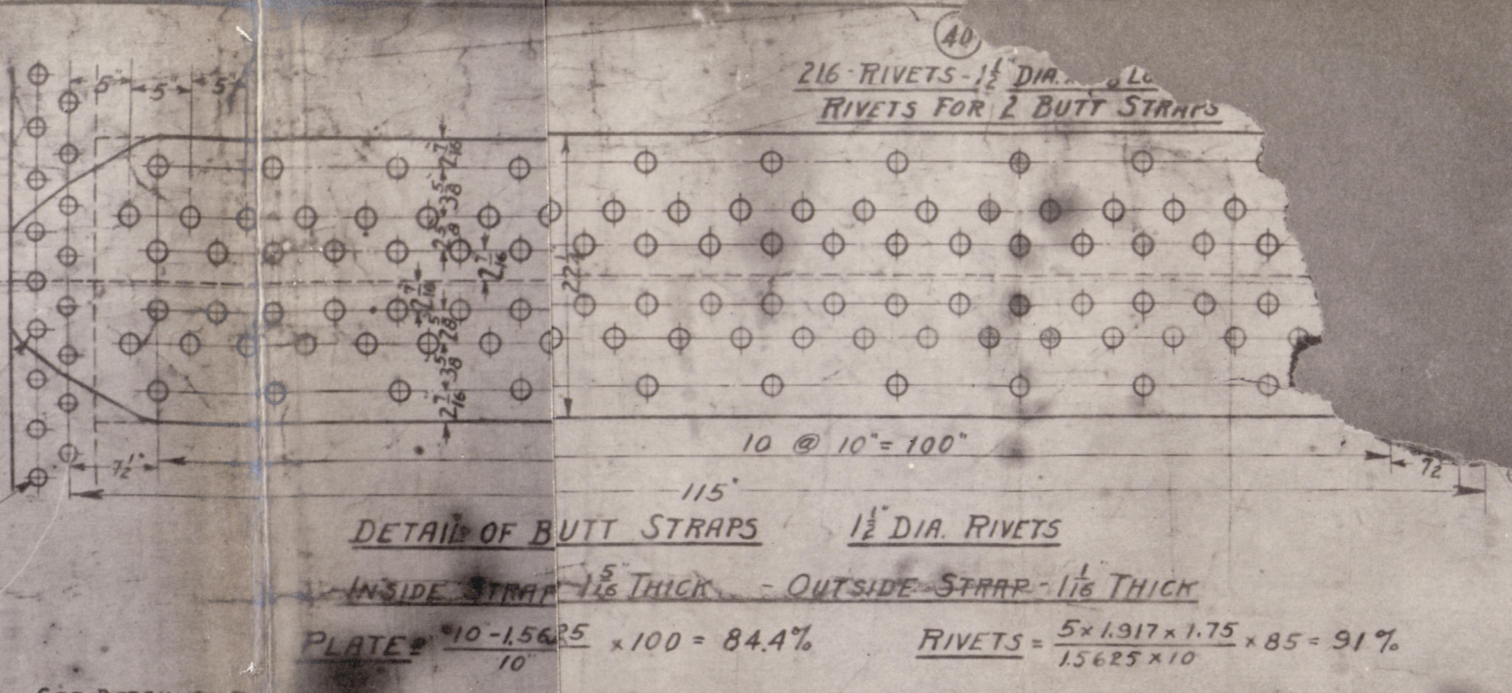 40
216 - RIVETS - 1 1/2" DIA.
RIVETS FOR 2 BUTT STRAPS
5" 5" 5"
2 7/16 3 5/8 2 5/8 2 7/16 2 7/16 2 5/8 3 5/8 2 7/16
22 1/4
10 @ 10" = 100"
7 1/2" 7 1/2
115"
DETAIL OF BUTT STRAPS 1 1/2" DIA. RIVETS
INSIDE STRAP 1 5/16 THICK - OUTSIDE STRAP - 1 1/16 THICK
PLATE = 10 - 1.5625 / 10" × 100 = 84.4% RIVETS = 5 × 1.917 × 1.75 / 1.5625 × 10 × 85 = 91%